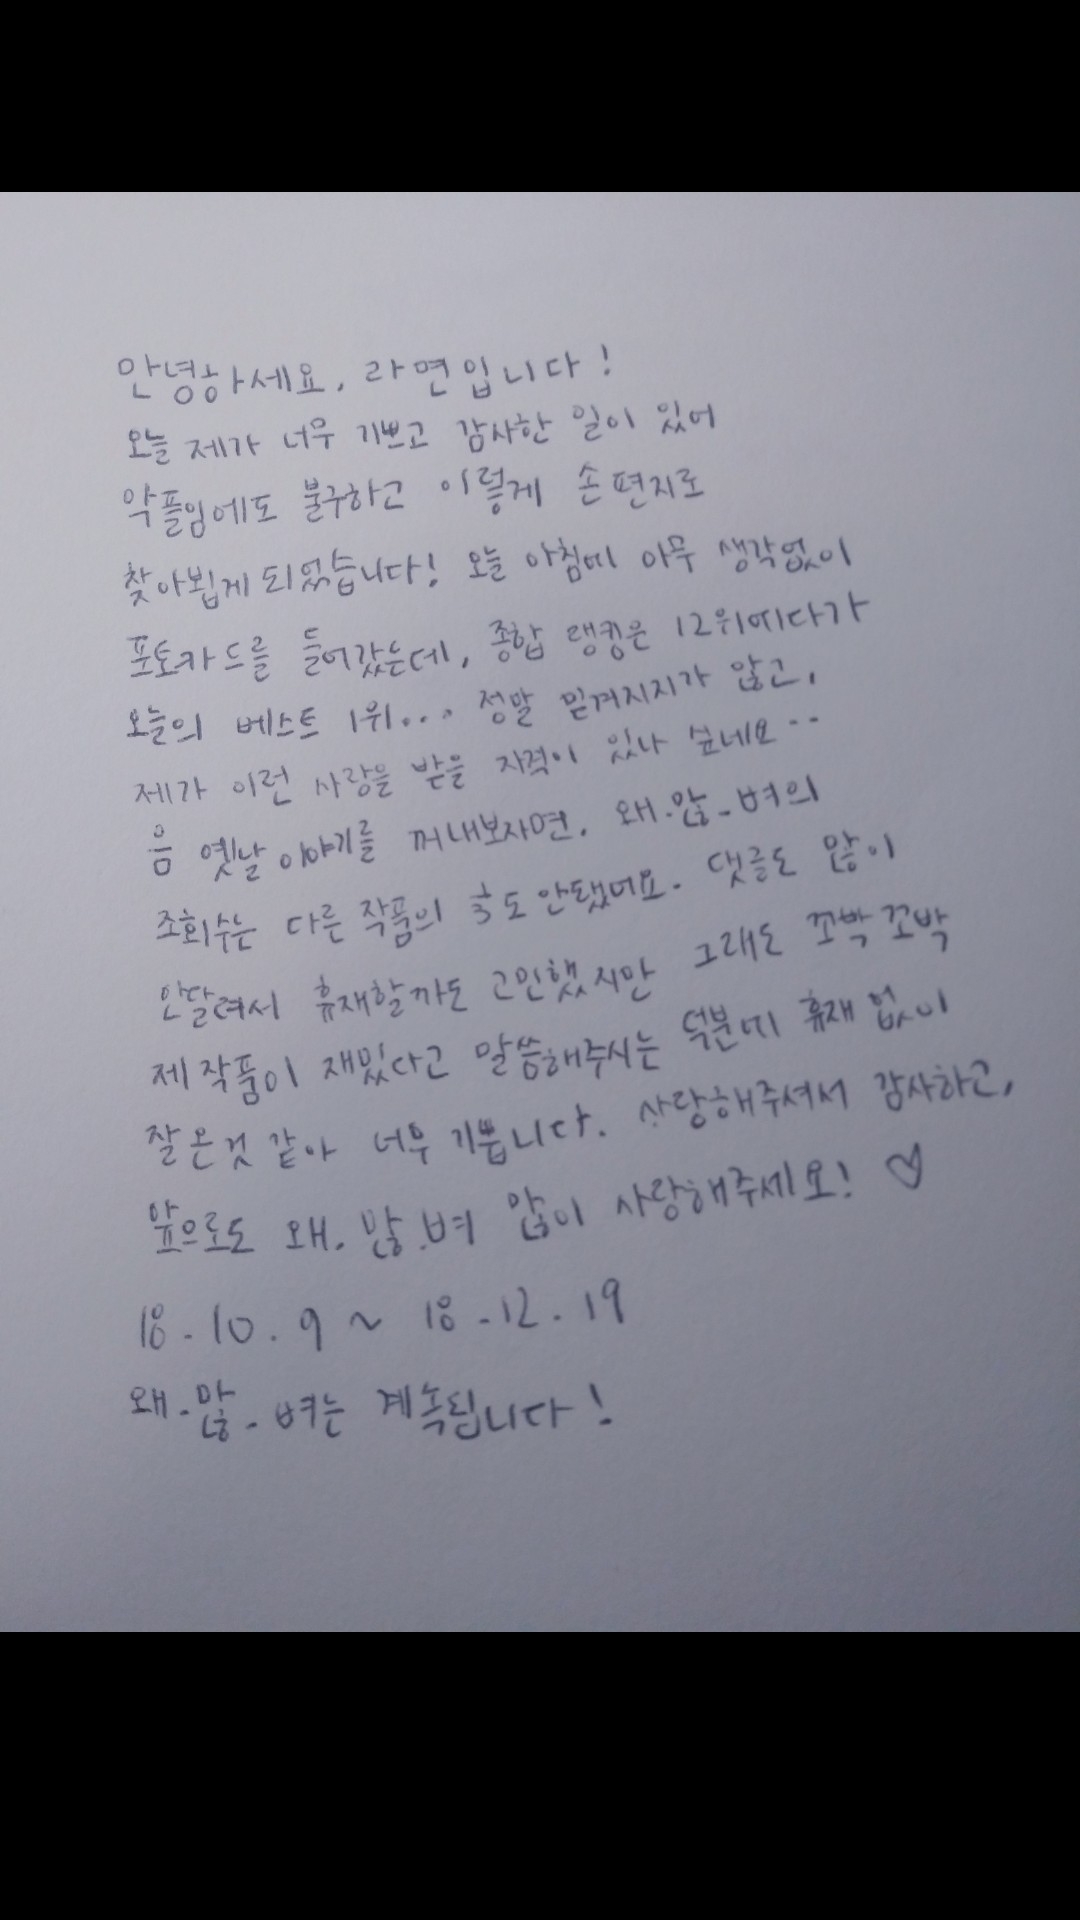 안녕하세요, 라면입니다!
오늘 제가 너무 기쁘고 감사한 일이 있어
악플임에도 불구하고 이렇게 손편지로
찾아뵙게 되었습니다! 오늘 아침에 아무 생각없이
포토카드를 들어갔는데, 종합 랭킹은 12위에다가
오늘의 베스트 1위... 정말 믿겨지지가 않고,
제가 이런 사랑을 받을 자격이 있나 싶네요..
음 옛날 이야기를 꺼내보자면, 왜.많.벼의
조회수는 다른 작품의 ⅓도 안됐어요. 댓글도 많이
안달려서 휴재할까도 고민했지만 그래도 꼬박꼬박
제 작품이 재밌다고 말씀해주시는 덕분에 휴재 없이
잘 온것 같아 너무 기쁩니다. 사랑해주셔서 감사하고,
앞으로도 왜.많.벼 많이 사랑해주세요! ♡
18.10.9 ~ 18.12.19
왜.많.벼는 계속됩니다!